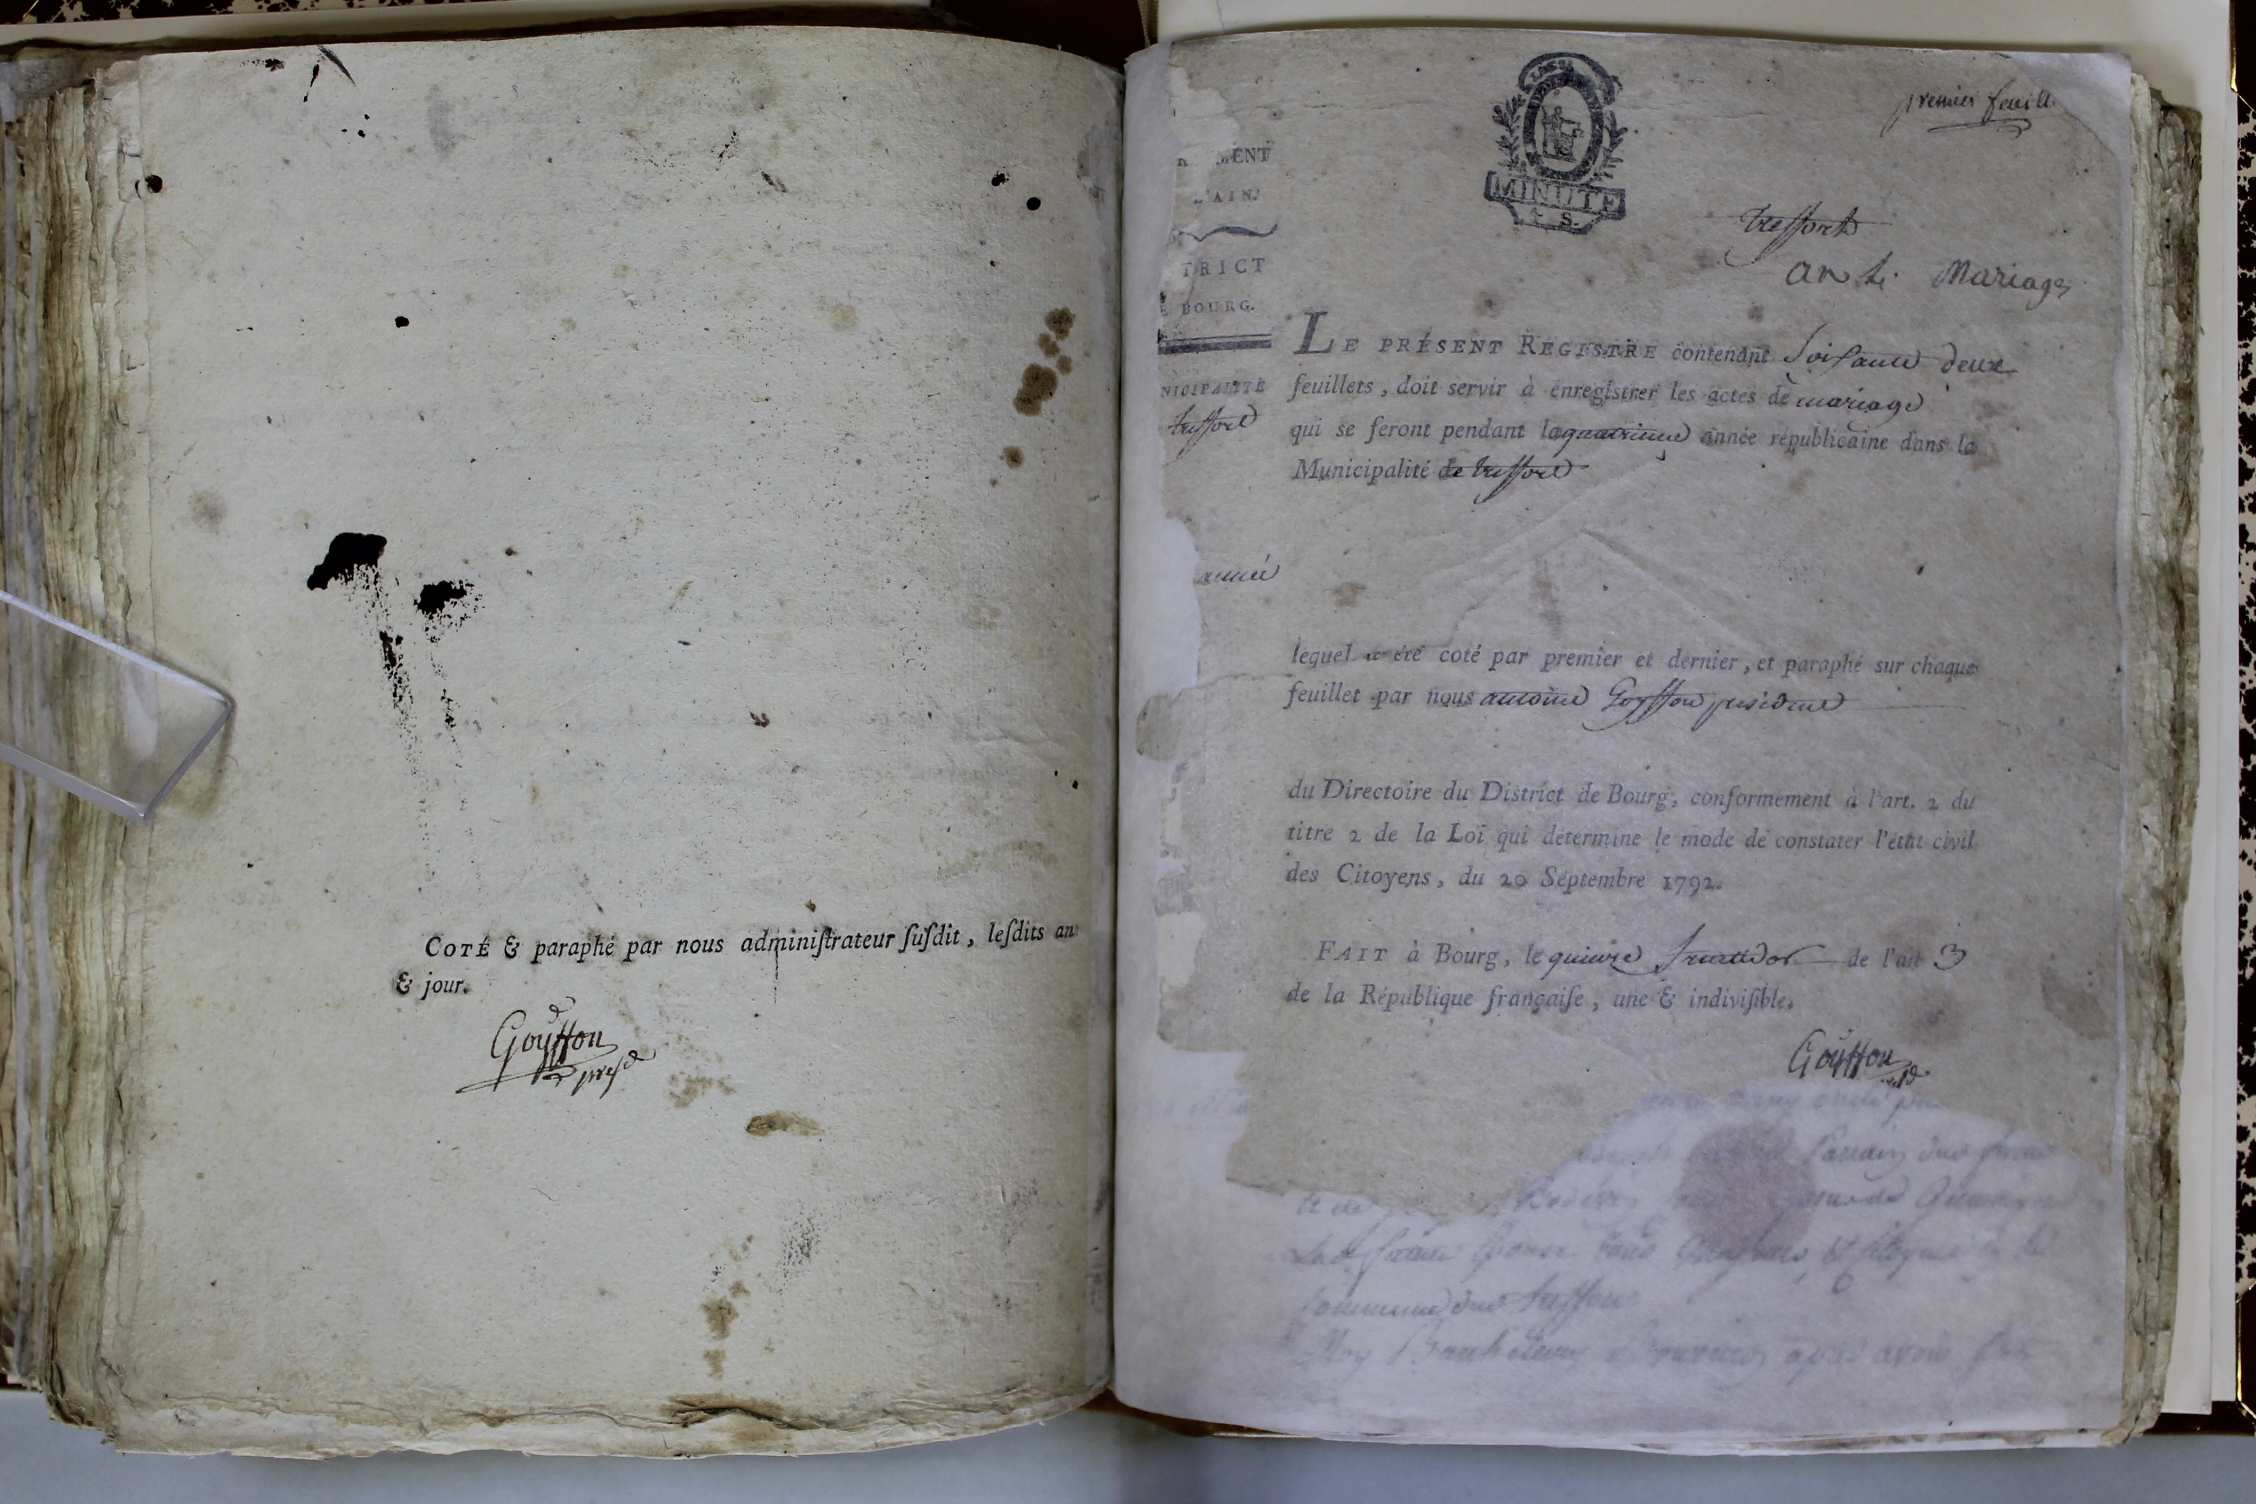 COTÉ & paraphé par nous adminiſtrateur ſuſdit, leſdits an
& jour.
Goÿffon
presd
premier feuill
MINUTE
4 S.
Treffort
an 4. Mariages
MENT
L'AIN.
TRICT
E BOURG.
NICIPALITÉ
treffort
année
LE PRÉSENT REGISTRE contenant Soixante deux
feuillets, doit servir à enregistrer les actes de mariage
qui se feront pendant la quatrieme année républicaine dans la
Municipalité de treffort
lequel a été coté par premier et dernier, et paraphé sur chaque
feuillet par nous antoine Goyffon président
du Directoire du District de Bourg, conformément à l'art. 2 du
titre 2 de la Loi qui détermine le mode de constater l'état civil
des Citoyens, du 20 Septembre 1792.
FAIT à Bourg, le quinze fructidor de l'an 3
de la République françaiſe, une & indiviſible.
Goÿffon
commune de treffort